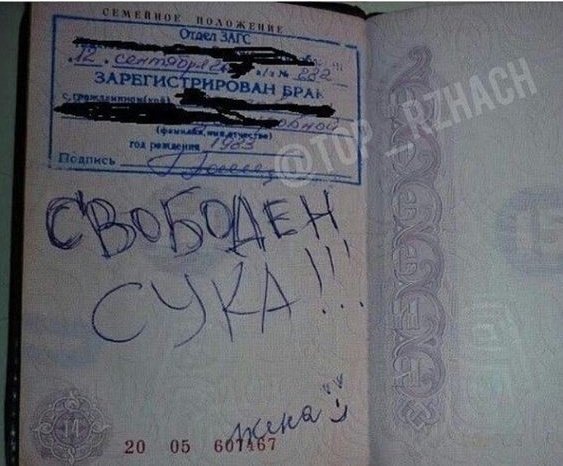 СЕМЕЙНОЕ ПОЛОЖЕНИЕ
Отдел ЗАГС
12. сентября а/з № 232
ЗАРЕГИСТРИРОВАН БРАК
с гражданином(кой)
(фамилия, имя, отчество)
год рождения 1983
Подпись
СВОБОДЕН
СУКА!!!
жена
14
20 05 607467
15
@TOP_RZHACH